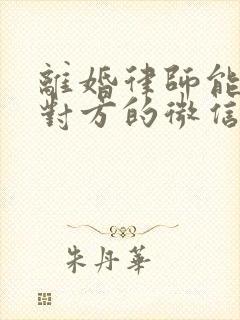 離婚律師能
對方的微信
朱丹華